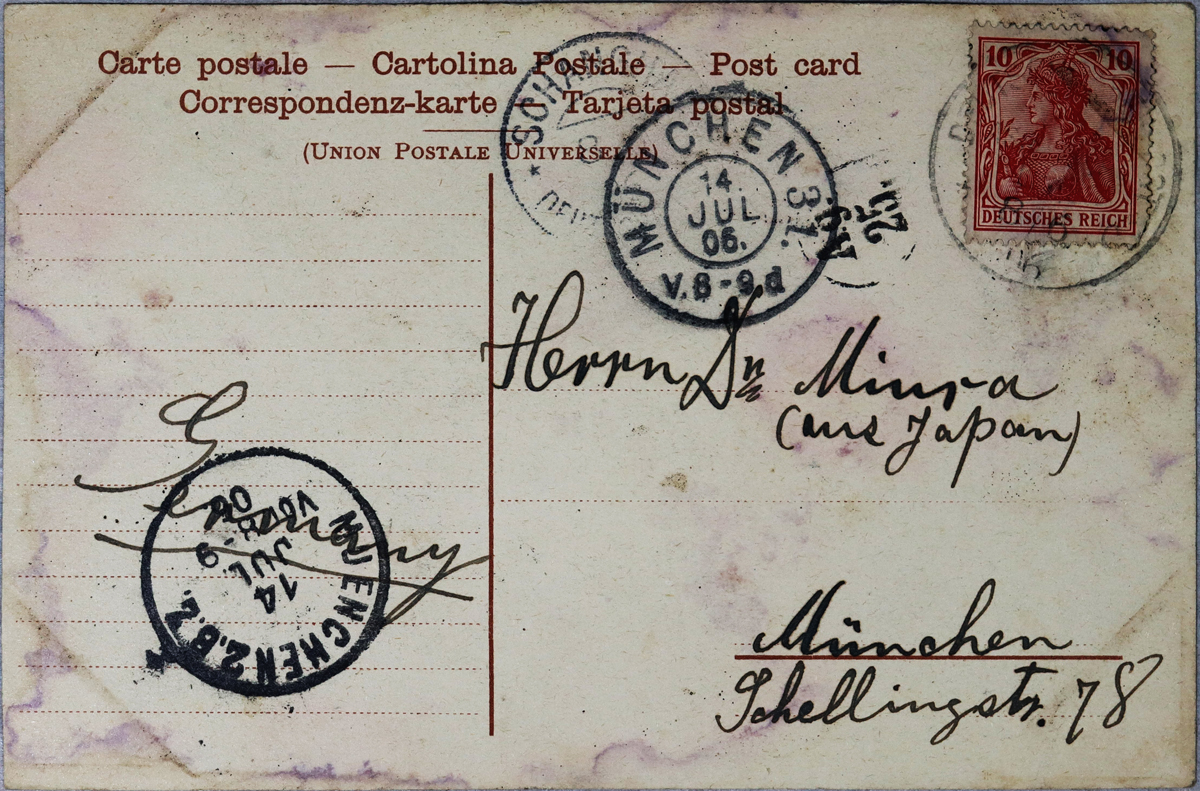 Carte postale — Cartolina Postale — Post card
Correspondenz-karte — Tarjeta postal
(Union Postale Universelle)
10 10
DEUTSCHES REICH
SCHANG
* DEU
MÜNCHEN 31.
14.
JUL
06.
V.8-9.d
Herrn Dr Miura
(aus Japan)
Germany
MUENCHEN 2.B.Z.
14
JUL
8-9
06
München
Schellingstr. 78